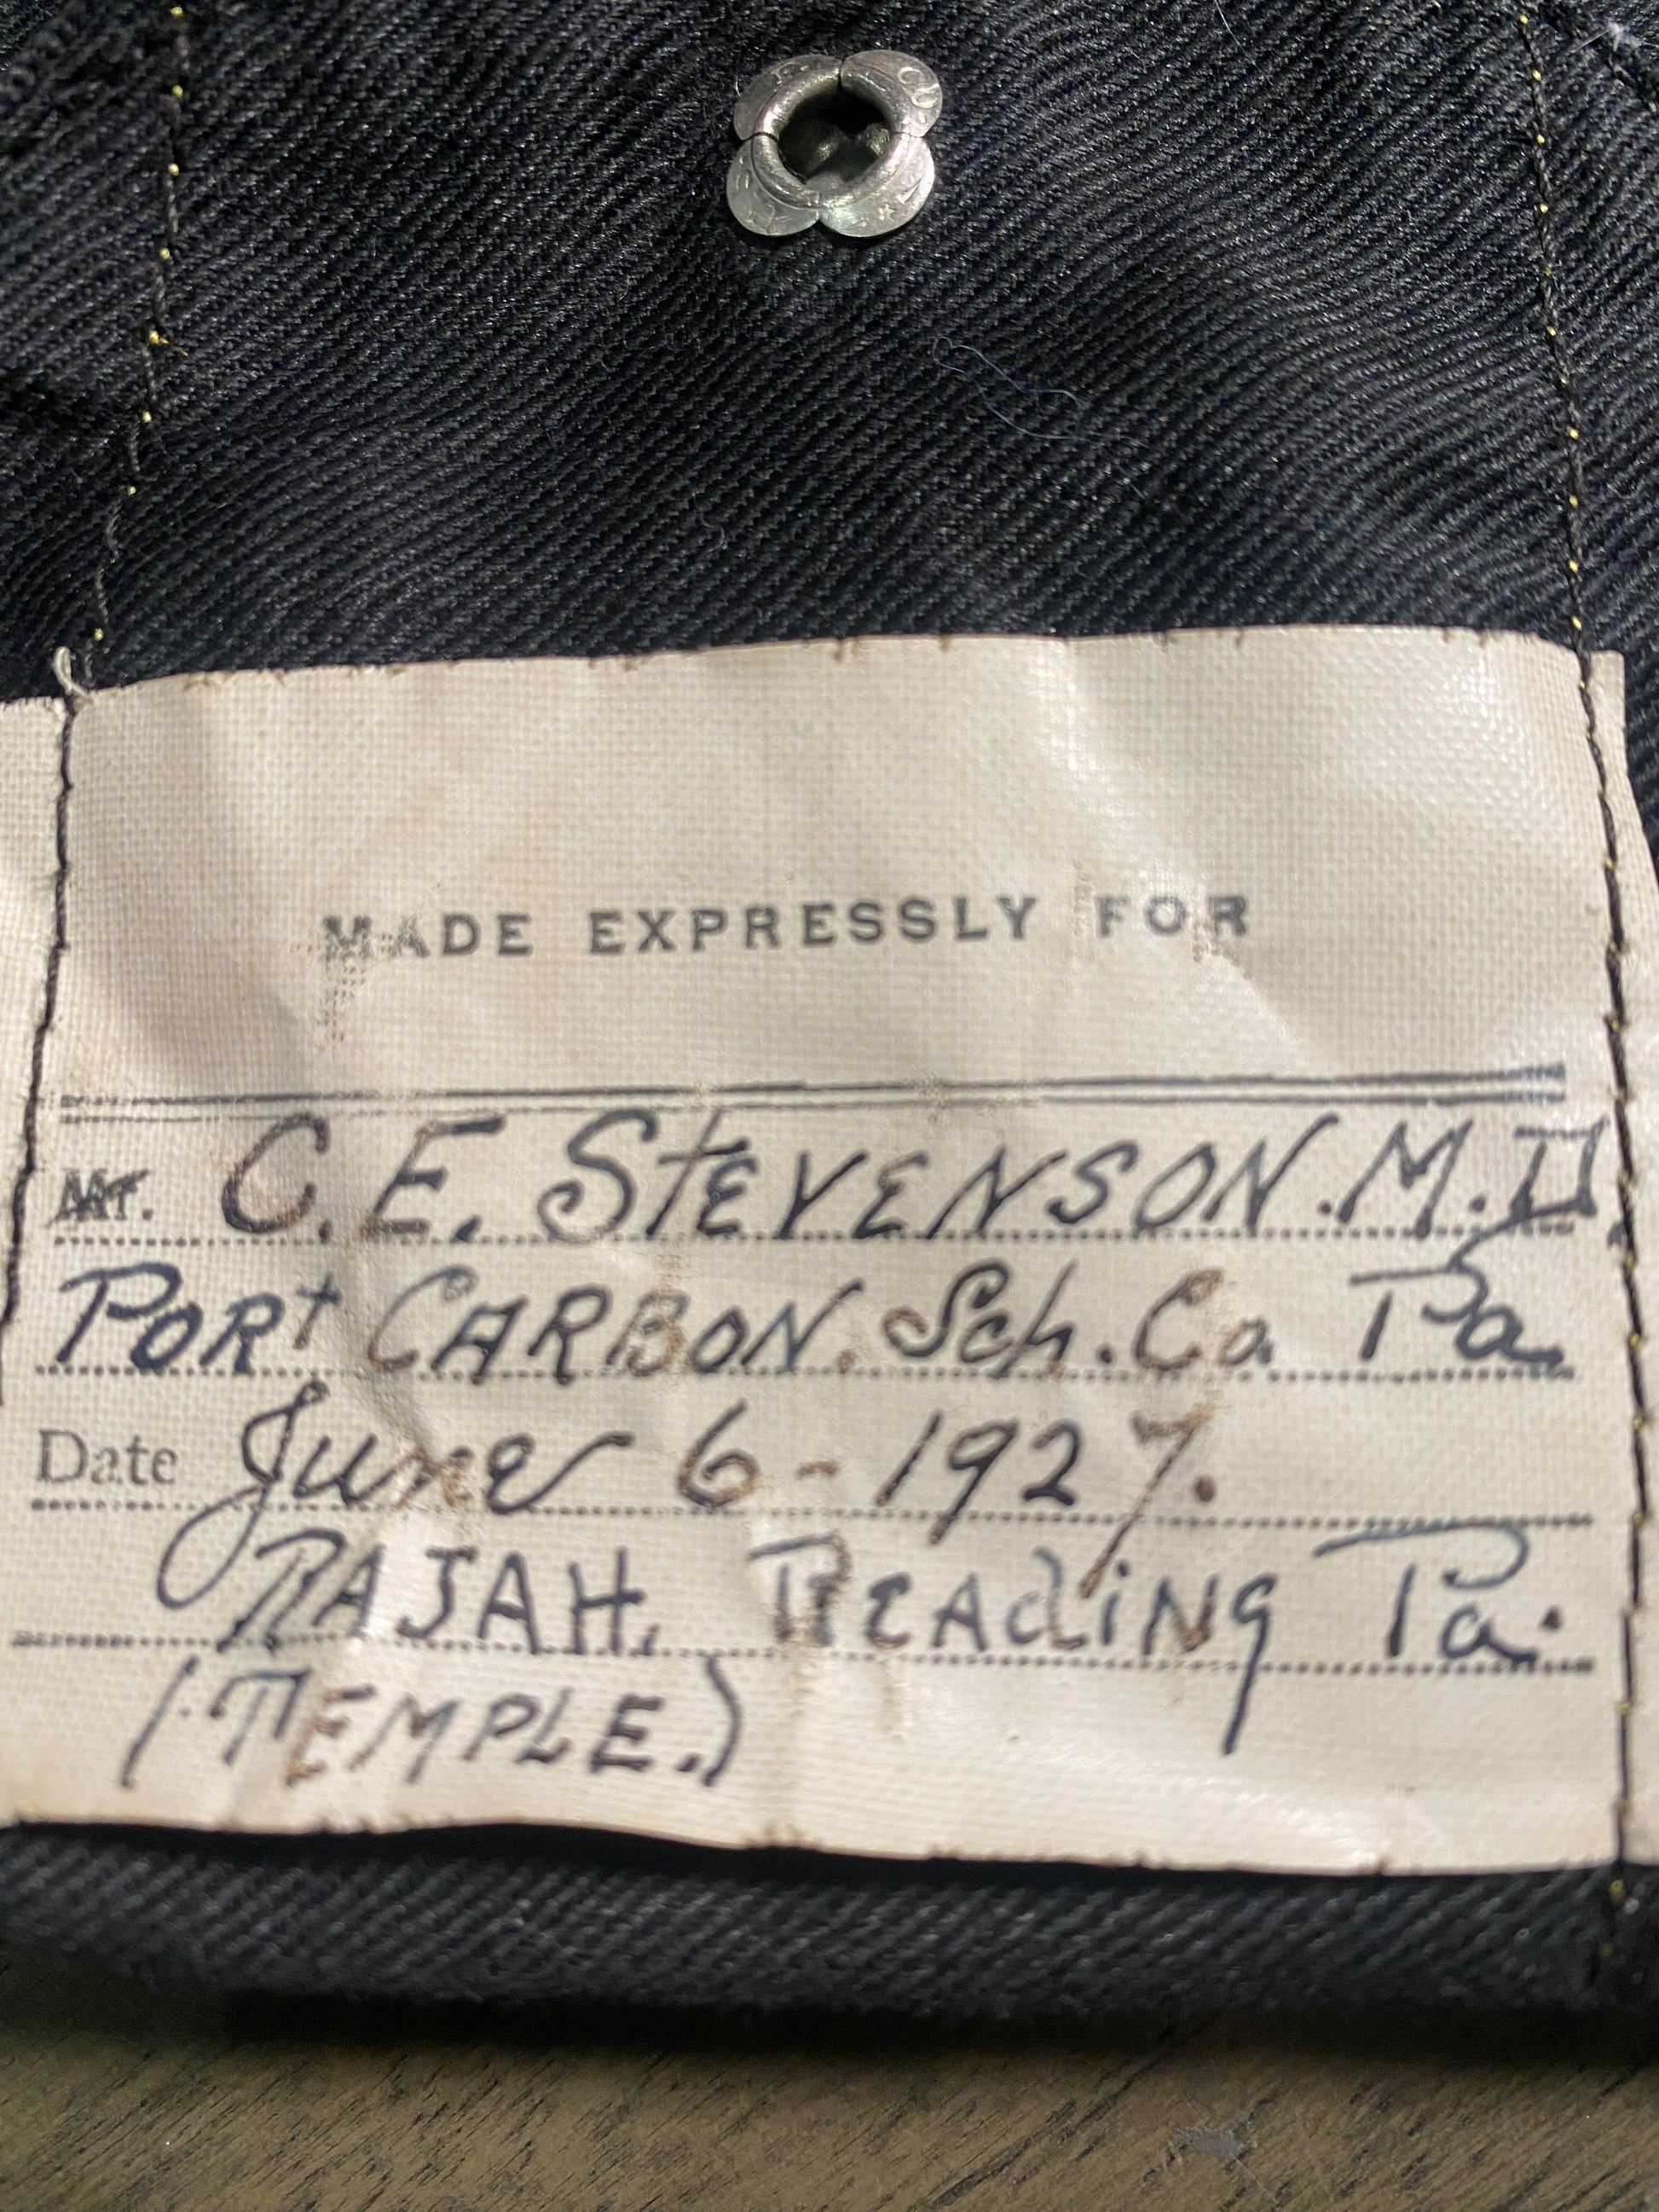 MADE EXPRESSLY FOR
Mr. C. E. STEVENSON. M. D.
PORT CARBON. Sch. Co. Pa.
Date June 6 - 1927.
RAJAH, READING Pa.
(TEMPLE.)